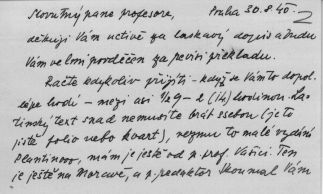 Slovutný pane profesore, Praha 30.8.40.
děkuji Vám uctivě za laskavý dopis a budu
Vám velmi povděčen za revisi překladu.
Račte kdykoliv přijíti – když se Vám to dopol.
lépe hodí – mezi asi 1/2 9 – 2 (14) hodinou. La-
tinský text snad nemusíte brát s sebou (je to
jistě folio nebo kvart), vezmu to malé vydání
Plantinovo, mám je ještě od p. prof. Vašici. Ten
je ještě na Moravě, a p. redaktor Skoumal Vám